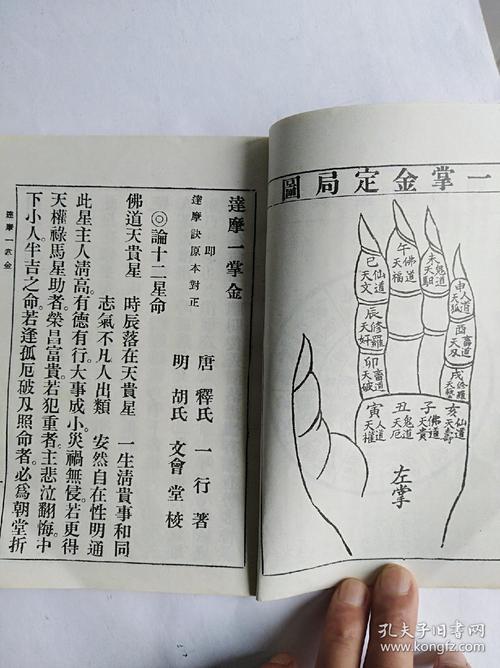 一掌金定局圖
申人道天孤
未鬼道天馹
午佛道天福
巳仙道天文
酉畜道天刄
辰修羅天奸
戌修羅天藝
卯畜道天破
亥仙道天壽
子佛道天貴
丑鬼道天厄
寅人道天權
左掌
達摩一掌金
即達摩訣原本對正
唐 釋氏 一行 著
明 胡氏 文會堂 校
◎論十二星命
佛道天貴星 時辰落在天貴星 一生清貴事和同
志氣不凡人出類 安然自在性明通
此星主人清高。有德有行。大事成。小災禍無侵。若更得
天權祿馬星助者。榮昌富貴。若犯重者。主悲泣翻悔。中
下小人。半吉之命。若逢孤厄破刄照命者。必爲朝堂折
達摩一掌金
孔夫子旧书网
www.kongfz.com